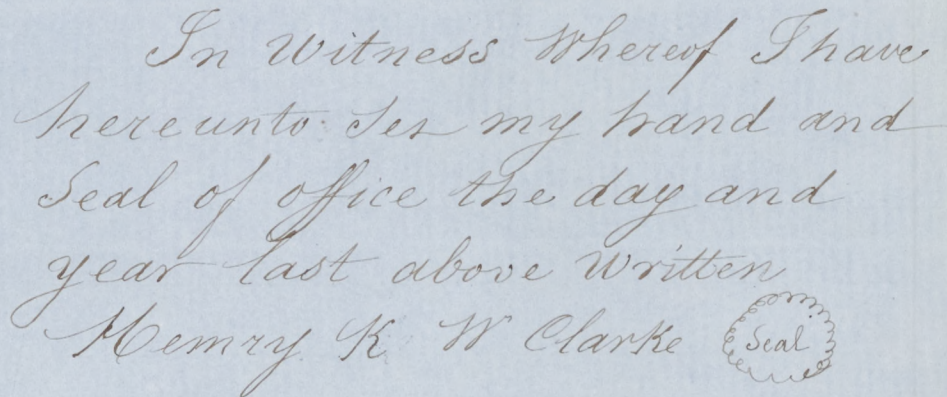 In Witness Whereof I have
hereunto set my hand and
Seal of office the day and
year last above Written
Henry K W Clarke Seal